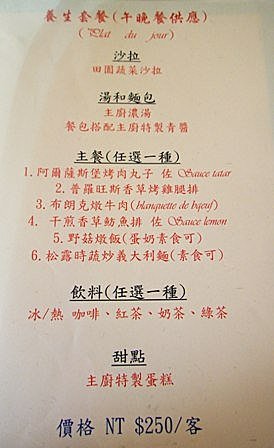 養生套餐(午晚餐供應)
(Plat du jour)
沙拉
田園蔬菜沙拉
湯和麵包
主廚濃湯
餐包搭配主廚特製青醬
主餐(任選一種)
1.阿爾薩斯堡烤肉丸子 佐 Sauce tatar
2.普羅旺斯香草烤雞腿排
3.布朗克燉牛肉(blanquette de bœuf)
4. 干煎香草魴魚排 佐 Sauce lemon
5.野菇燉飯(蛋奶素食可)
6.松露時蔬炒義大利麵(素食可)
飲料(任選一種)
冰/熱 咖啡、紅茶、奶茶、綠茶
甜點
主廚特製蛋糕
價格 NT $250/客